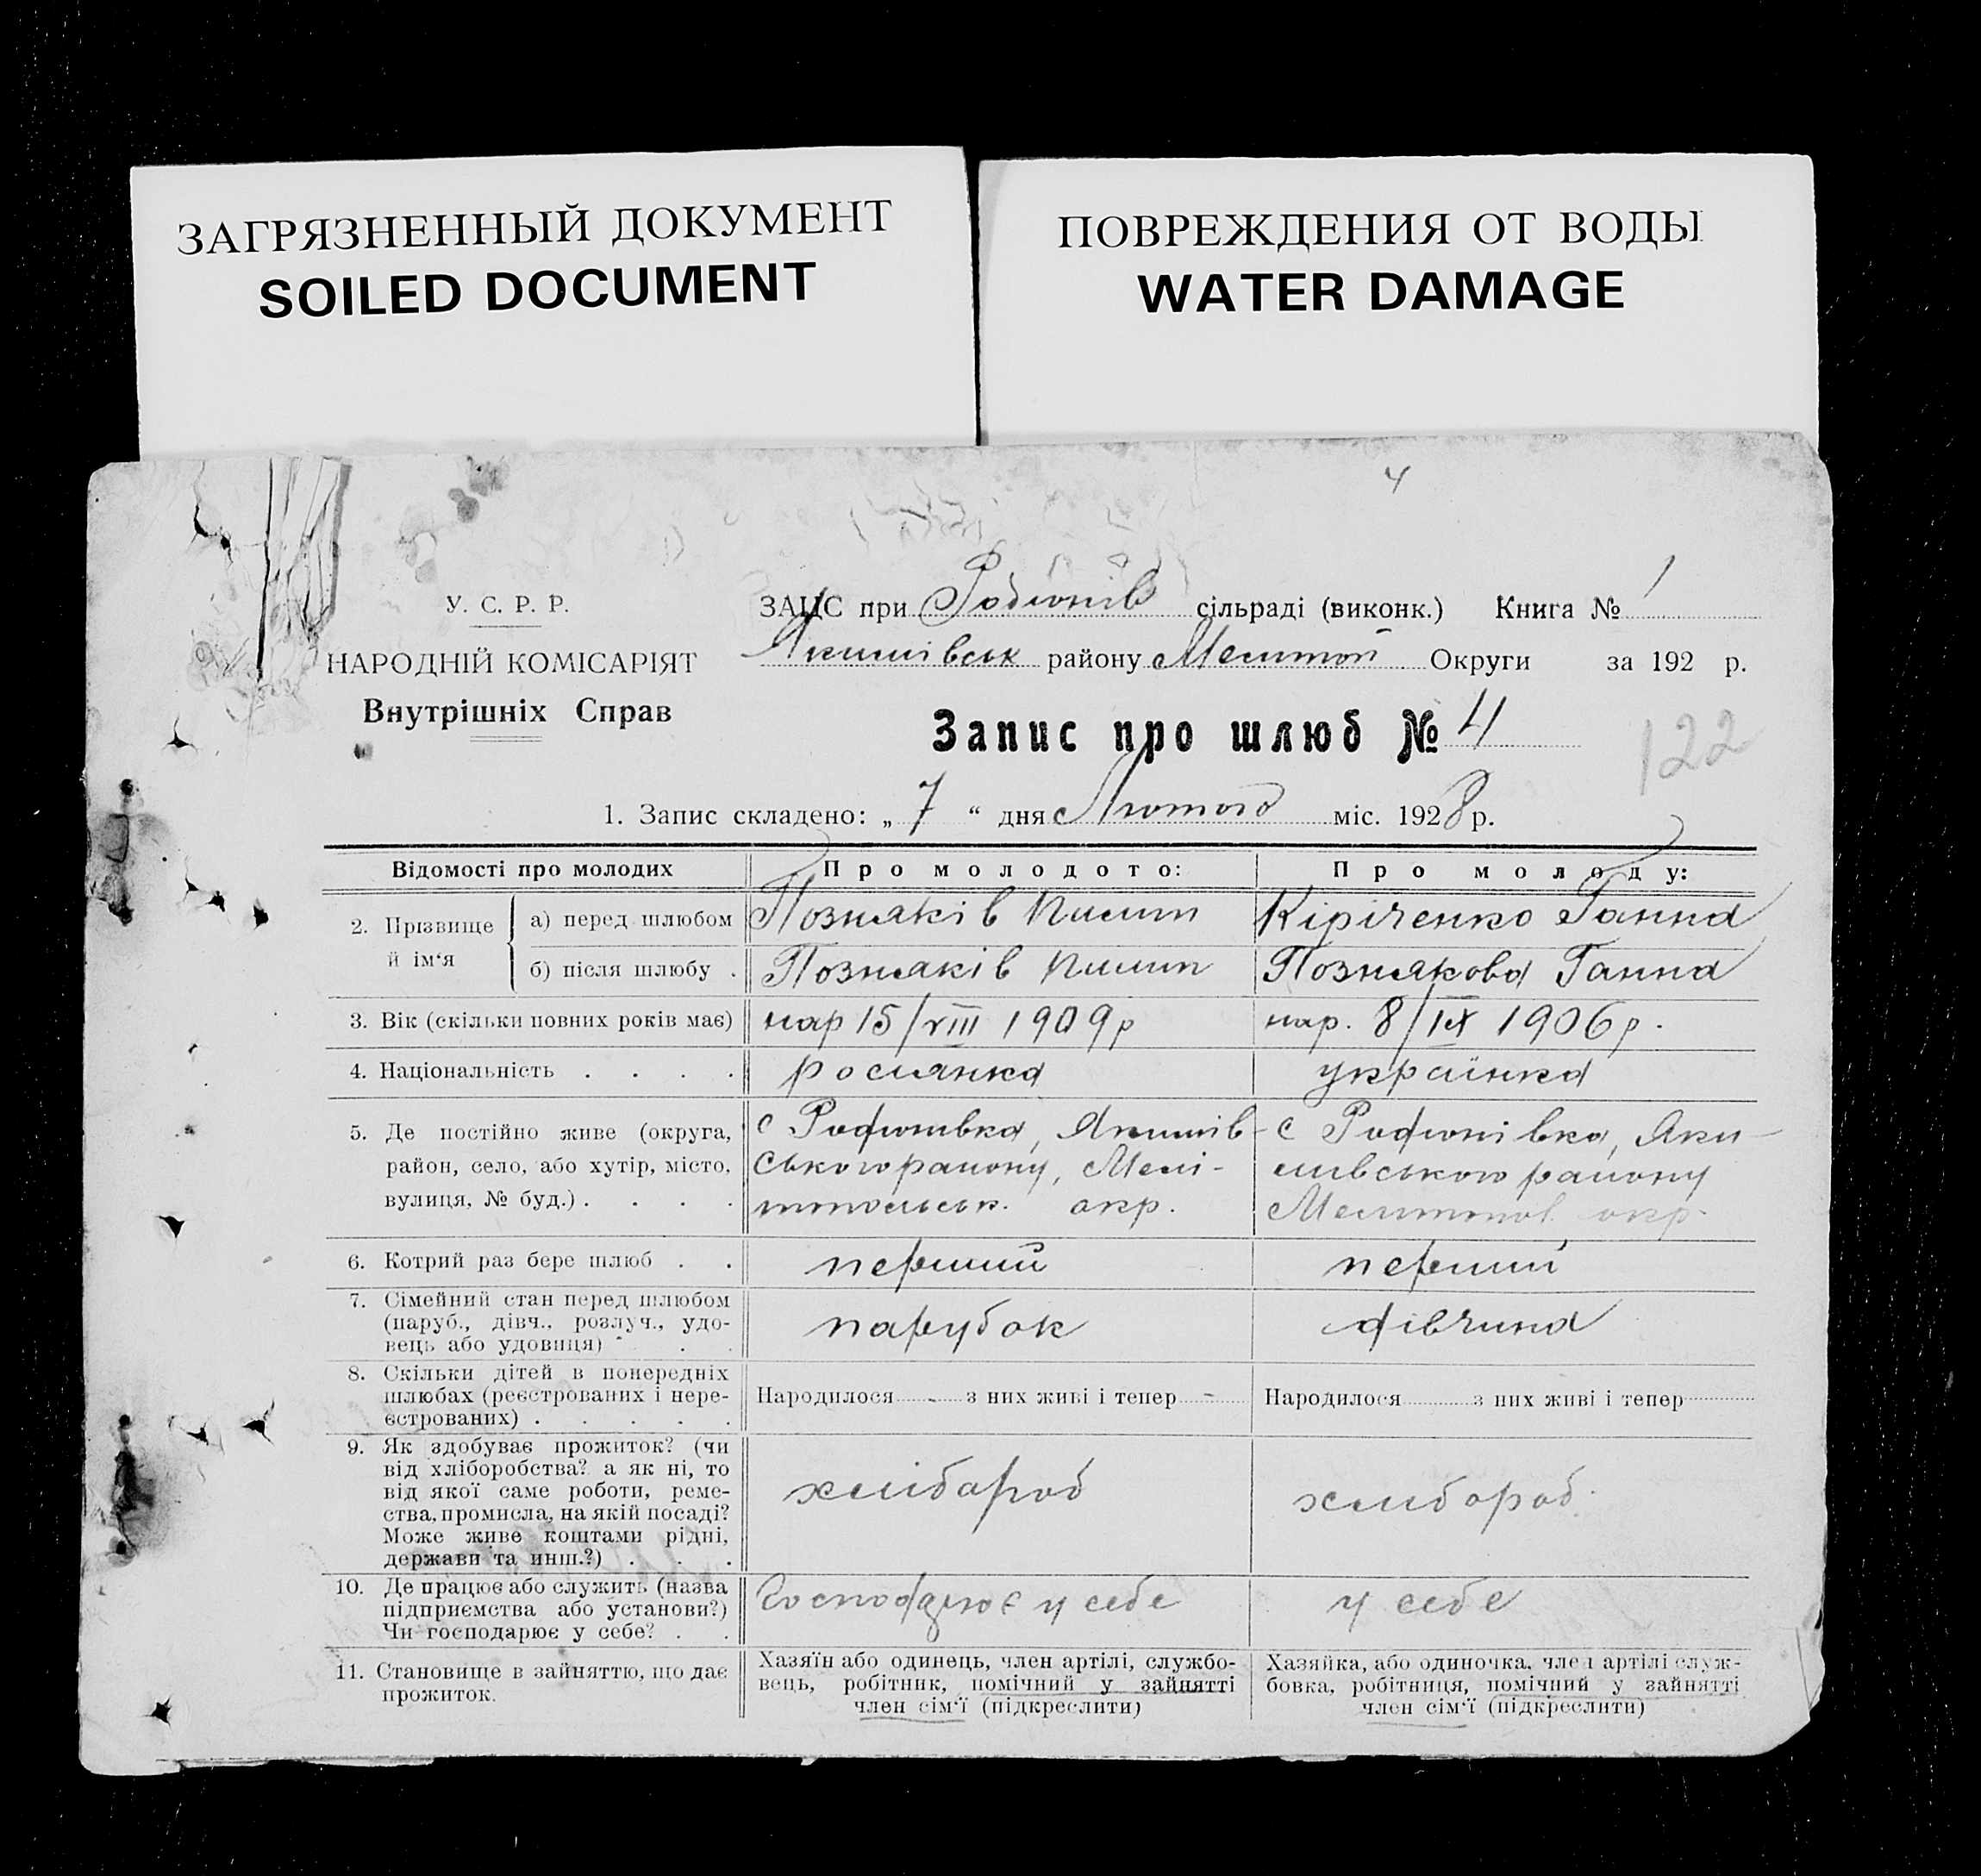 ЗАГРЯЗНЕННЫЙ ДОКУМЕНТ
SOILED DOCUMENT
ПОВРЕЖДЕНИЯ ОТ ВОДЫ
WATER DAMAGE
4
У. С. Р. Р.
НАРОДНІЙ КОМІСАРІЯТ
Внутрішніх Справ
ЗАЦС при Родионів сільраді (виконк.) Книга № 1
Якимівськ району Мелитоп Округи за 192 р.
Запис про шлюб № 4
122
1. Запис складено: „ 7 “ дня Лютого міс. 1928 р.
Відомості про молодих
Про молодого:
Про молоду:
2. Прізвище й ім‘я
а) перед шлюбом
Позняків Пилип
Кіріченко Ганна
б) після шлюбу .
Позняків Пилип
Познякова Ганна
3. Вік (скільки повних років має)
нар 15/VIII 1909 р
нар. 8/IX 1906 р.
4. Національність . . . .
росиянка
українка
5. Де постійно живе (округа,
район, село, або хутір, місто,
вулиця, № буд.) . . . .
с Родионівка, Якимів-
ського району, Мелі-
топольськ. окр.
с Родионівка, Яки-
мівського району
Мелитопол окр.
6. Котрий раз бере шлюб . .
перший
перший
7. Сімейний стан перед шлюбом
(паруб., дівч., розлуч., удо-
вець або удовиця) . .
парубок
дівчина
8. Скільки дітей в попередніх
шлюбах (реєстрованих і нере-
єстрованих) . . . . .
Народилося - з них живі і тепер -
Народилося з них живі і тепер
9. Як здобуває прожиток? (чи
від хліборобства? а як ні, то
від якої саме роботи, реме-
ства, промисла, на якій посаді?
Може живе коштами рідні,
держави та инш.?) . . .
хлібароб
хлибороб.
10. Де працює або служить (назва
підприємства або установи?)
Чи господарює у себе? . .
у себе
у себе
11. Становище в зайняттю, що дає
прожиток.
Хазяїн або одинець, член артілі, службо-
вець, робітник, помічний у зайнятті
член сім‘ї (підкреслити)
Хазяйка, або одиночка, член артілі служ-
бовка, робітниця, помічний у зайнятті
член сім‘ї (підкреслити)